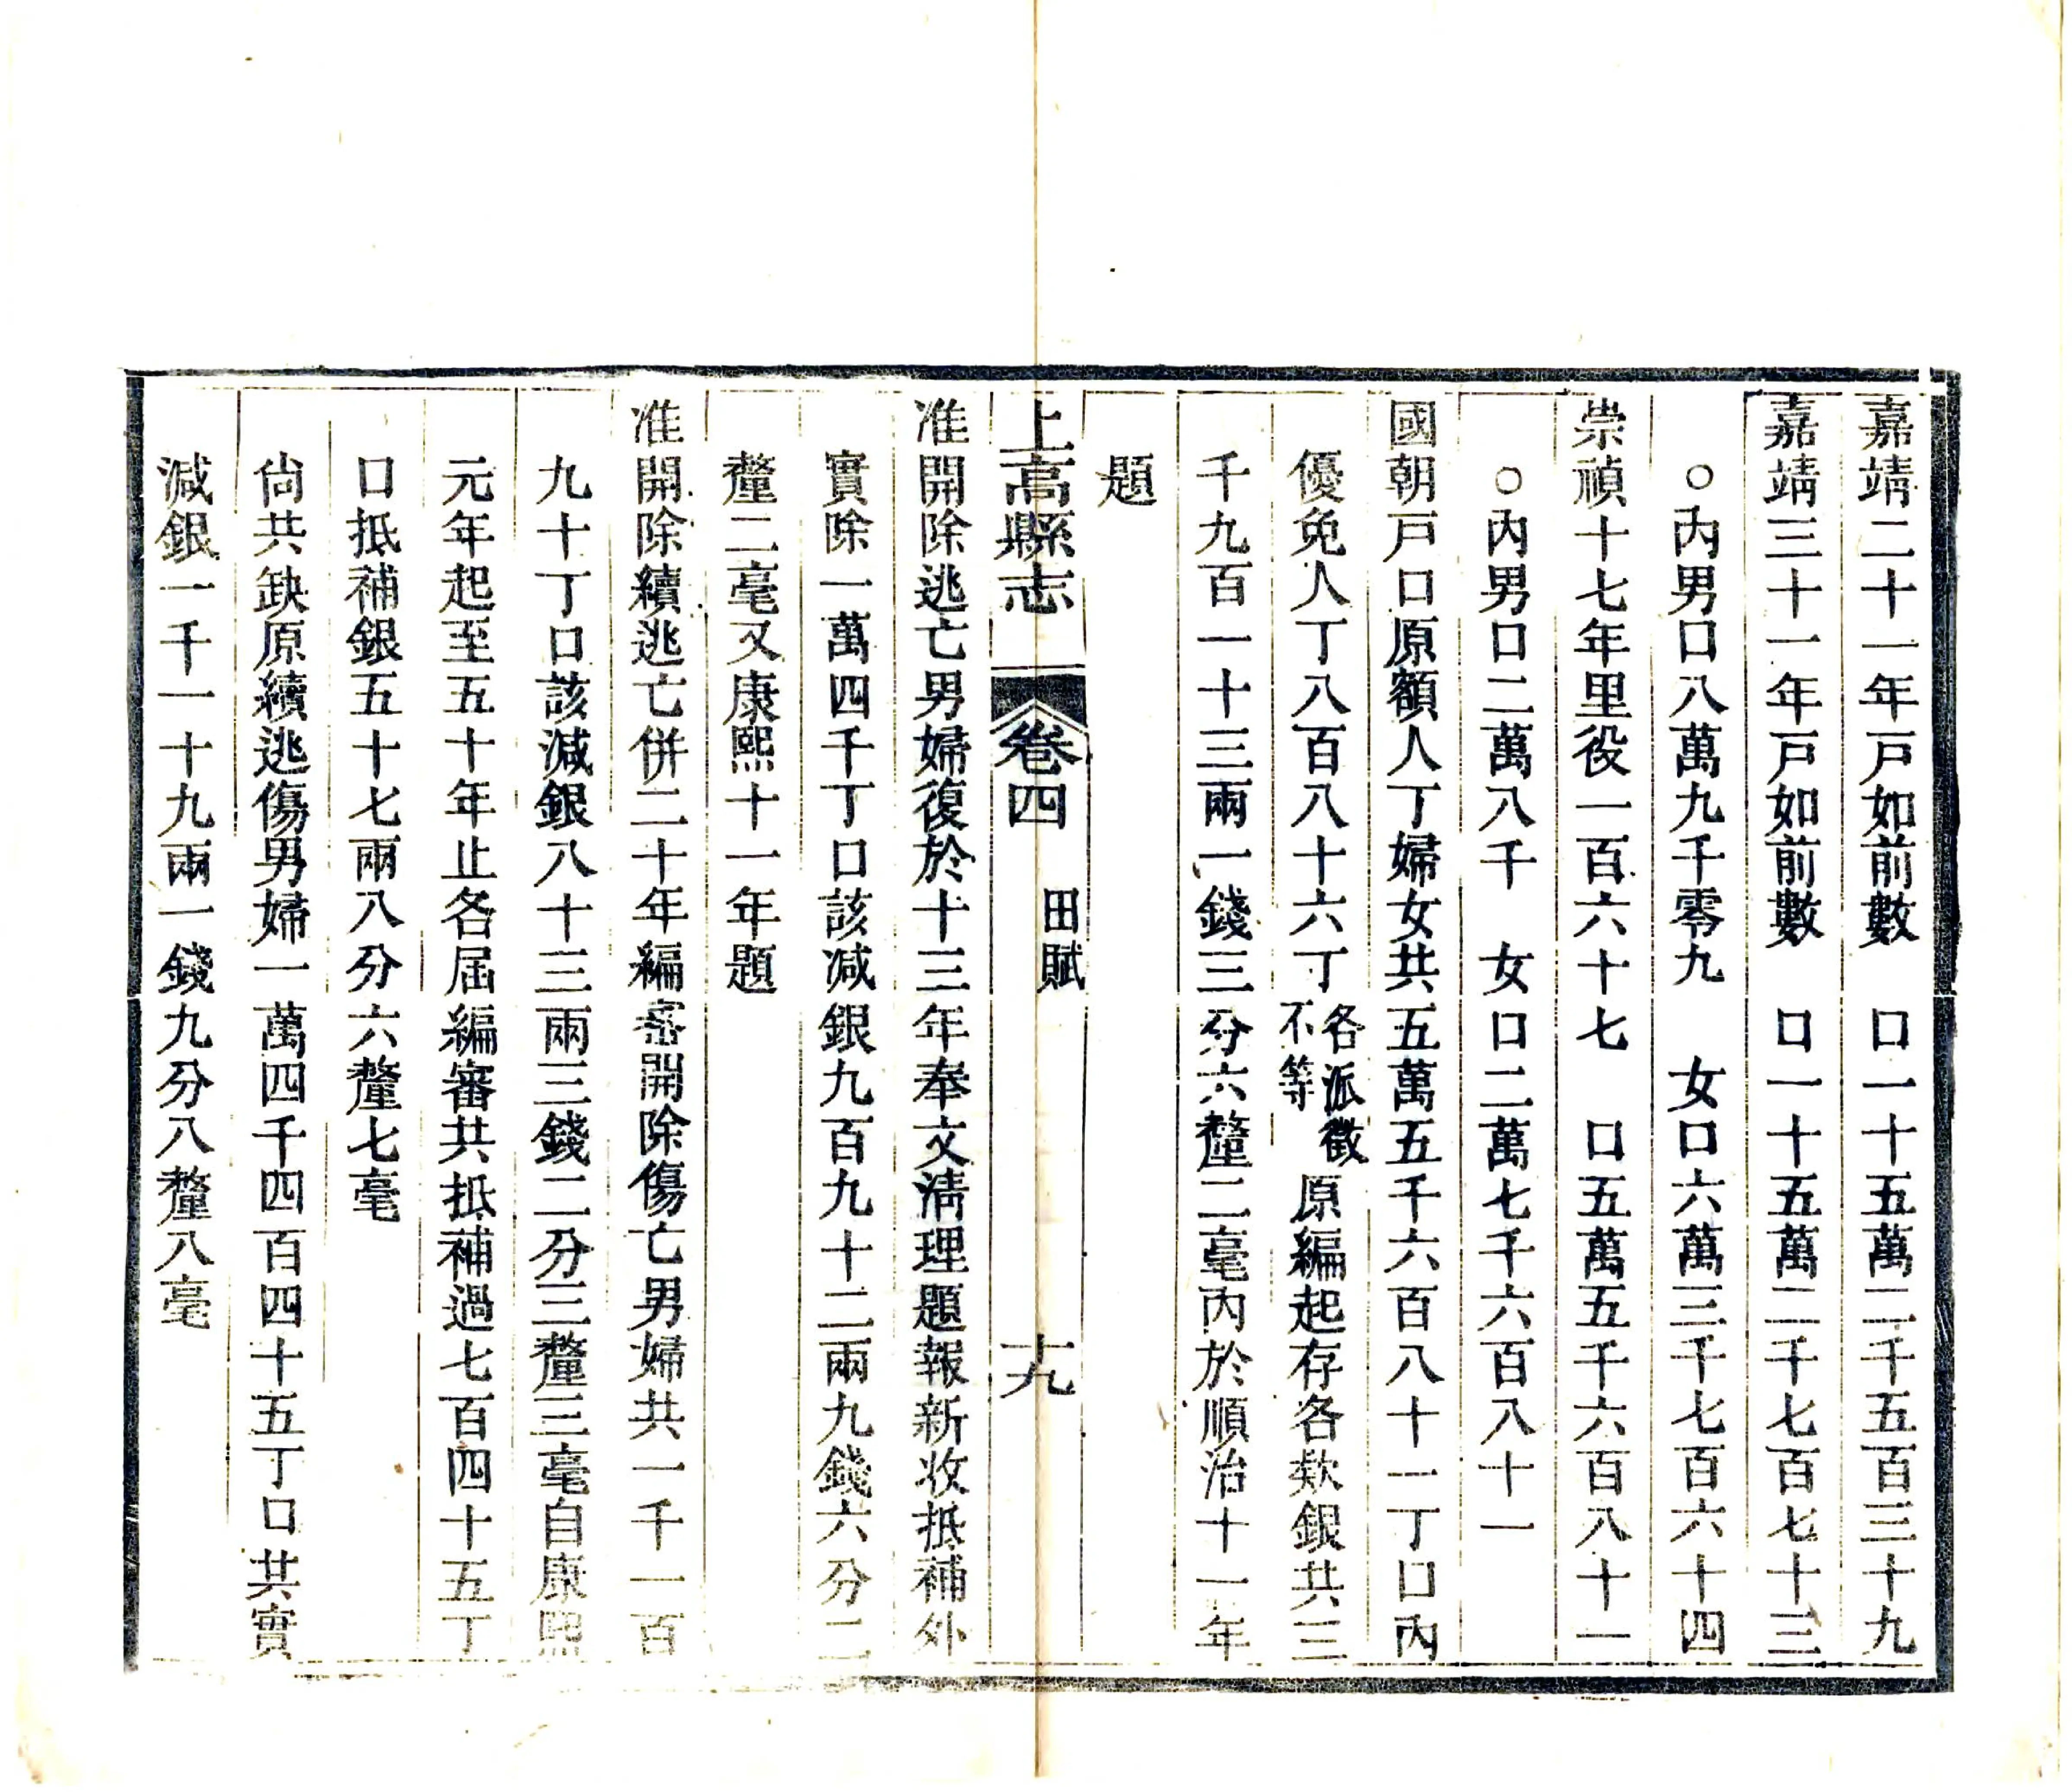 嘉靖二十一年戸如前數　口一十五萬二千五百三十九
嘉靖三十一年戸如前數　口一十五萬二千七百七十三
○內男口八萬九千零九　女口六萬三千七百六十四
崇禎十七年里役一百六十七　口五萬五千六百八十一
○內男口二萬八千　女口二萬七千六百八十一
國朝戸口原額人丁婦女共五萬五千六百八十一丁口內
優免人丁八百八十六丁各派徵不等原編起存各欵銀共三
千九百一十三兩一錢三分六釐二毫內於順治十一年
題
上高縣志　卷四　田賦　十九
准開除逃亡男婦復於十三年奉文淸理題報新收抵補外
實除一萬四千丁口該減銀九百九十二兩九錢六分二
釐二毫又康熙十一年題
准開除續逃亡併二十年編審開除傷亡男婦共一千一百
九十丁口該減銀八十三兩三錢二分三釐三毫自康熙
元年起至五十年止各屆編審共抵補過七百四十五丁
口抵補銀五十七兩八分六釐七毫
尙共缺原續逃傷男婦一萬四千四百四十五丁口共實
減銀一千一十九兩一錢九分八釐八毫